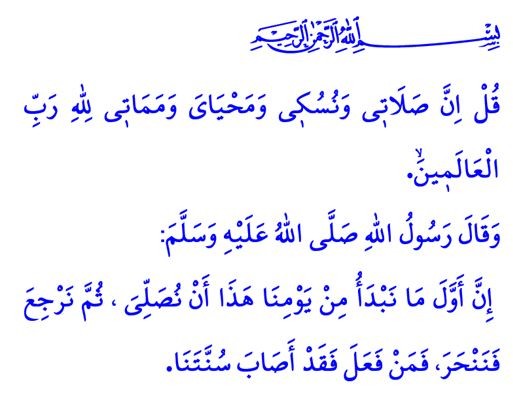 بِسْمِ اللهِ الرَّحْمٰنِ الرَّحِيمِ
قُلْ اِنَّ صَلَاتٖى وَنُسُكٖى وَمَحْيَاىَ وَمَمَاتٖى لِلّٰهِ رَبِّ
الْعَالَمٖينَۙ.
وَقَالَ رَسُولُ اللهِ صَلَّى اللهُ عَلَيْهِ وَسَلَّمَ:
إِنَّ أَوَّلَ مَا نَبْدَأُ مِنْ يَوْمِنَا هَذَا أَنْ نُصَلِّىَ ، ثُمَّ نَرْجِعَ
فَنَنْحَرَ، فَمَنْ فَعَلَ فَقَدْ أَصَابَ سُنَّتَنَا.